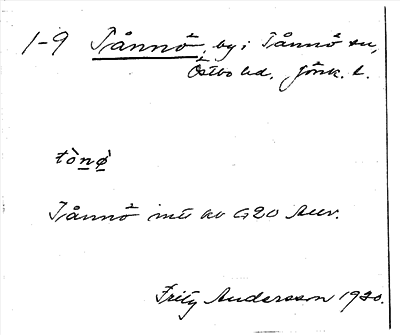 1-9 Tånnö, by i Tånnö sn,
Östbo hd. Jönk. l.
tònø̀
Tånnö mtl kv G20 Aur.
Fritz Andersson 1930.